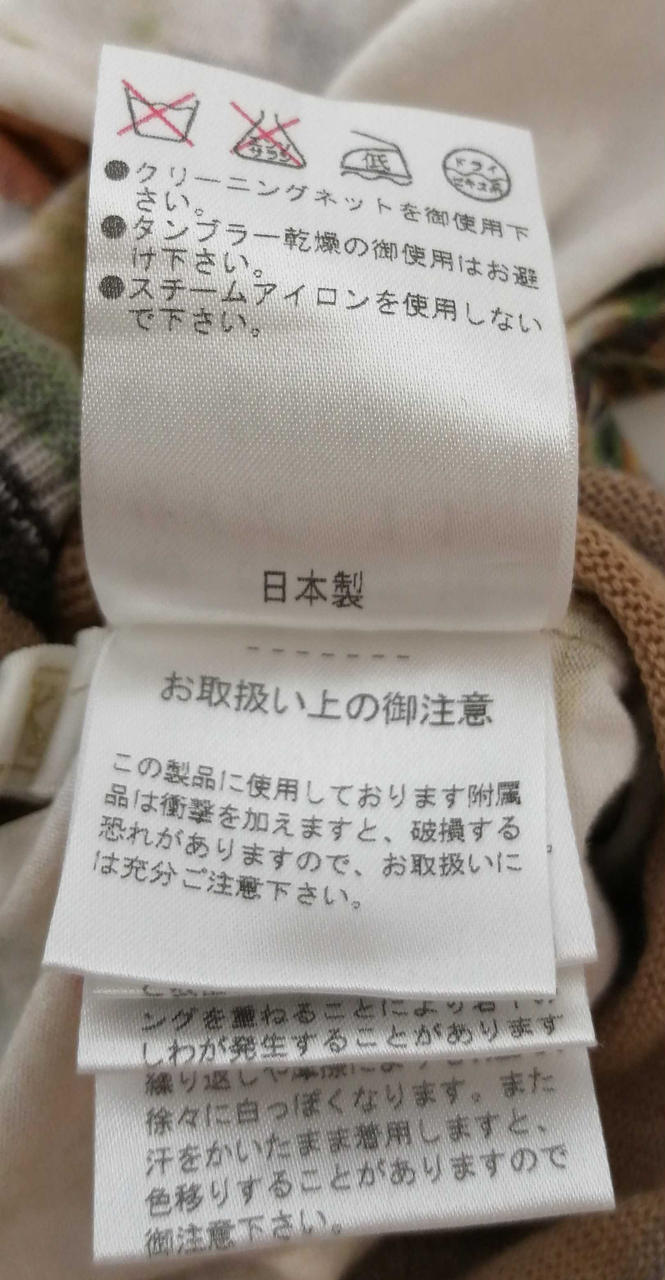 エンソ
サラシ
低
ドライ
セキユ系
●クリーニングネットを御使用下
さい。
●タンブラー乾燥の御使用はお避
け下さい。
●スチームアイロンを使用しない
で下さい。
日本製
-------
お取扱い上の御注意
この製品に使用しております附属
品は衝撃を加えますと、破損する
恐れがありますので、お取扱いに
は充分ご注意下さい。
ングを重ねることにより若干の
しわが発生することがあります
繰り返しや摩擦により
徐々に白っぽくなります。また
汗をかいたまま着用しますと、
色移りすることがありますので
御注意下さい。